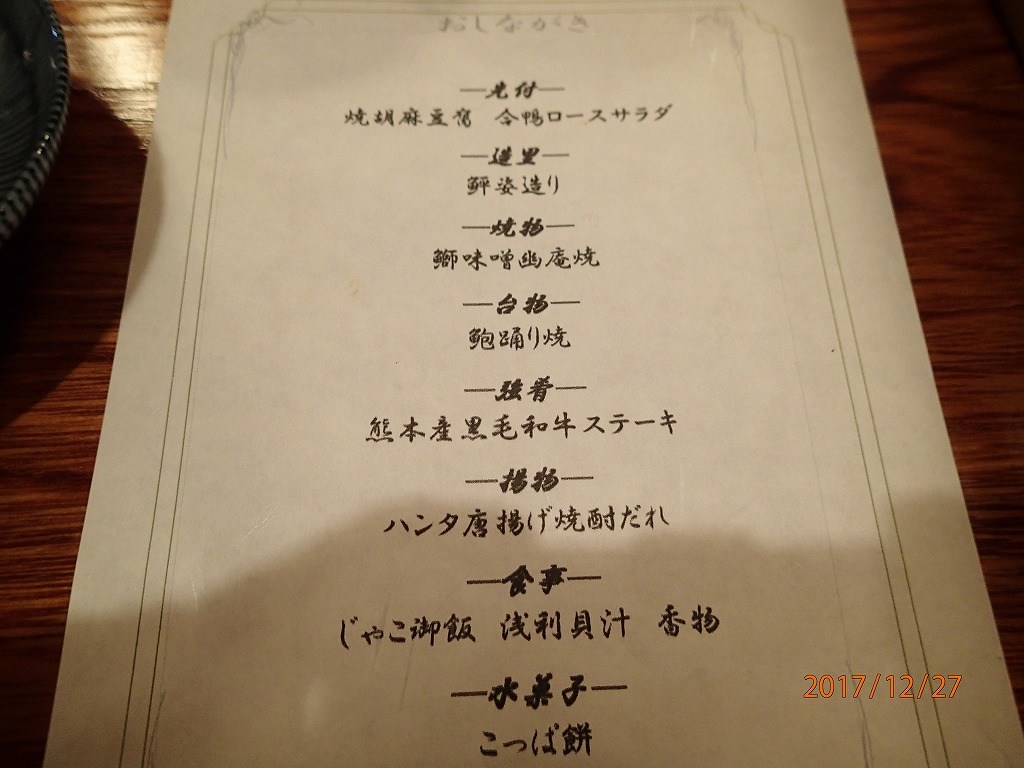 おしながき
―先付―
焼胡麻豆腐　合鴨ロースサラダ
―造里―
鮃姿造り
―焼物―
鰤味噌幽庵焼
―台物―
鮑踊り焼
―強肴―
熊本産黒毛和牛ステーキ
―揚物―
ハンタ唐揚げ焼酎だれ
―食事―
じゃこ御飯　浅利貝汁　香物
―水菓子―
こっぱ餅
2017/12/27